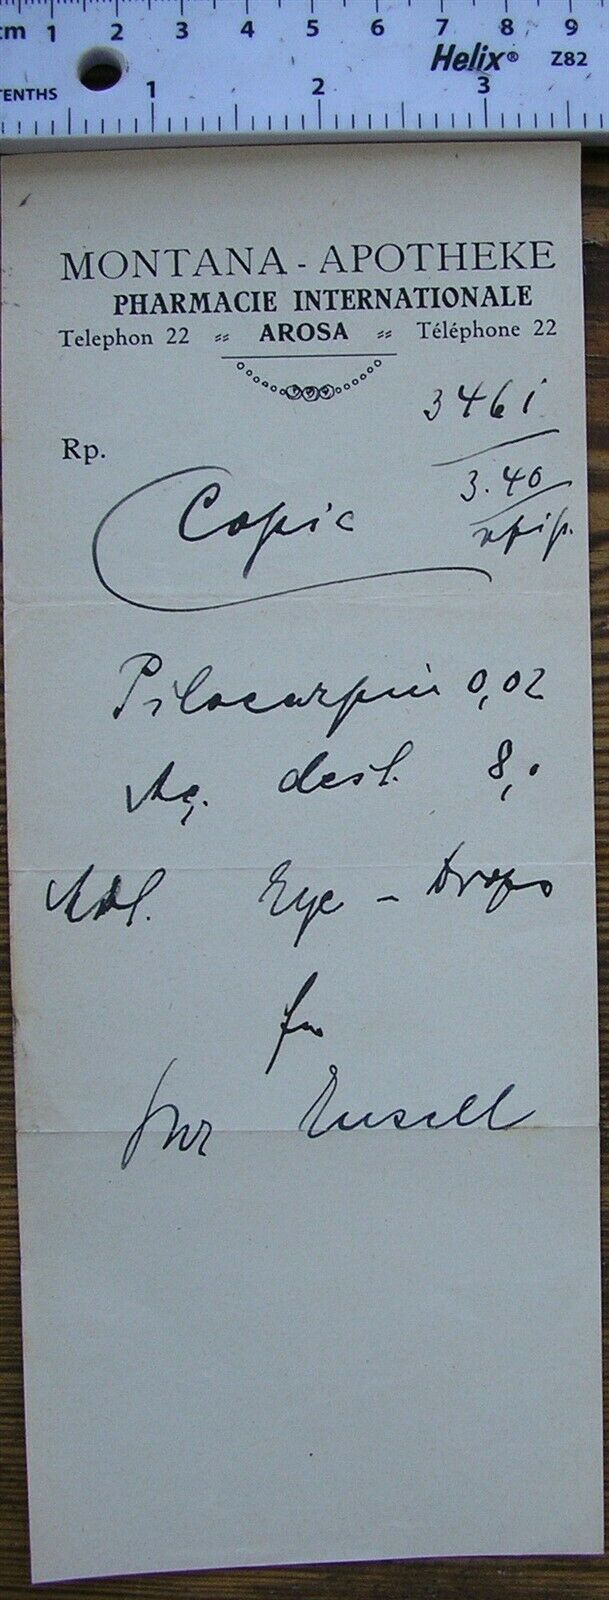 cm 1 2 3 4 5 6 7 8 9
Helix® Z82
TENTHS 1 2 3
MONTANA - APOTHEKE
PHARMACIE INTERNATIONALE
Telephon 22 AROSA Téléphone 22
3461
Rp.
3.40
Copie
Pilocarpin 0,02
Aq. dest. 8,0
Eye - Drops
for